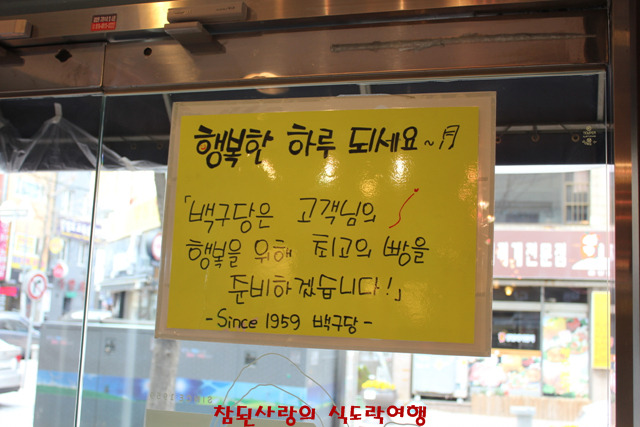 행복한 하루 되세요~♬
「백구당은 고객님의
행복을 위해 최고의 빵을
준비하겠습니다!」
-Since 1959 백구당-
참된사랑의 식도락여행